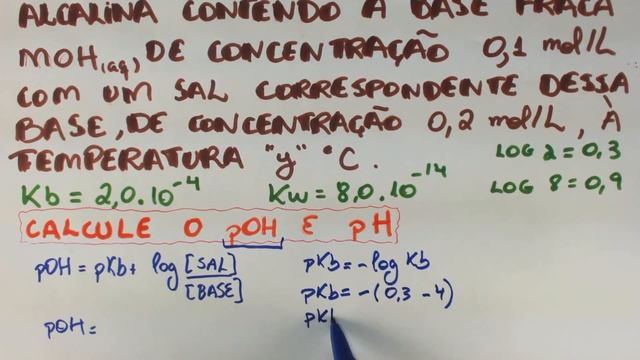 ALCALINA CONTENDO A BASE FRACA
MOH(aq), DE CONCENTRAÇÃO 0,1 mol/L
COM UM SAL CORRESPONDENTE DESSA
BASE, DE CONCENTRAÇÃO 0,2 mol/L, À
TEMPERATURA "y" °C.
LOG 2 = 0,3
Kb = 2,0.10⁻⁴ Kw = 8,0.10⁻¹⁴
LOG 8 = 0,9
CALCULE O pOH E pH
pOH = pKb + log [SAL]/[BASE]
pKb = -log Kb
pKb = -(0,3 - 4)
pOH =
pK